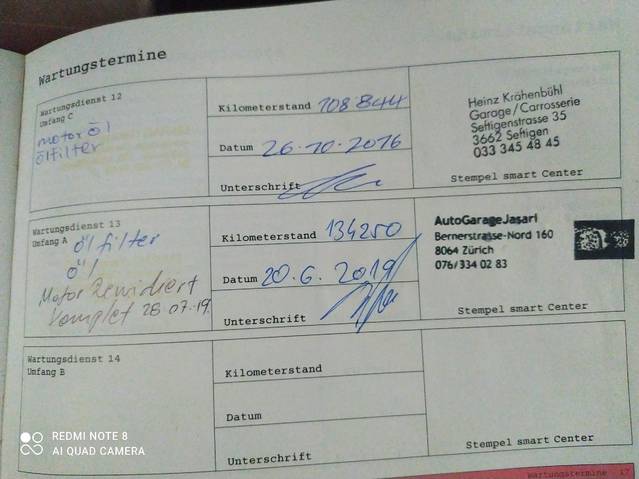 Wartungstermine
Wartungsdienst 12
Umfang C
motor öl
ölfilter
Kilometerstand 108 844
Datum 26.10.2016
Unterschrift
Heinz Krähenbühl
Garage/Carrosserie
Seftigenstrasse 35
3662 Seftigen
033 345 48 45
Stempel smart Center
Wartungsdienst 13
Umfang A
Öl filter
Öl
Motor Rewidiert
Komplet 28.07.19.
Kilometerstand 134250
Datum 20.6.2019
Unterschrift
AutoGarageJasari
Bernerstrasse-Nord 160
8064 Zürich
076/334 02 83
Stempel smart Center
Wartungsdienst 14
Umfang B
Kilometerstand
Datum
Unterschrift
Stempel smart Center
Wartungstermine 17
REDMI NOTE 8
AI QUAD CAMERA